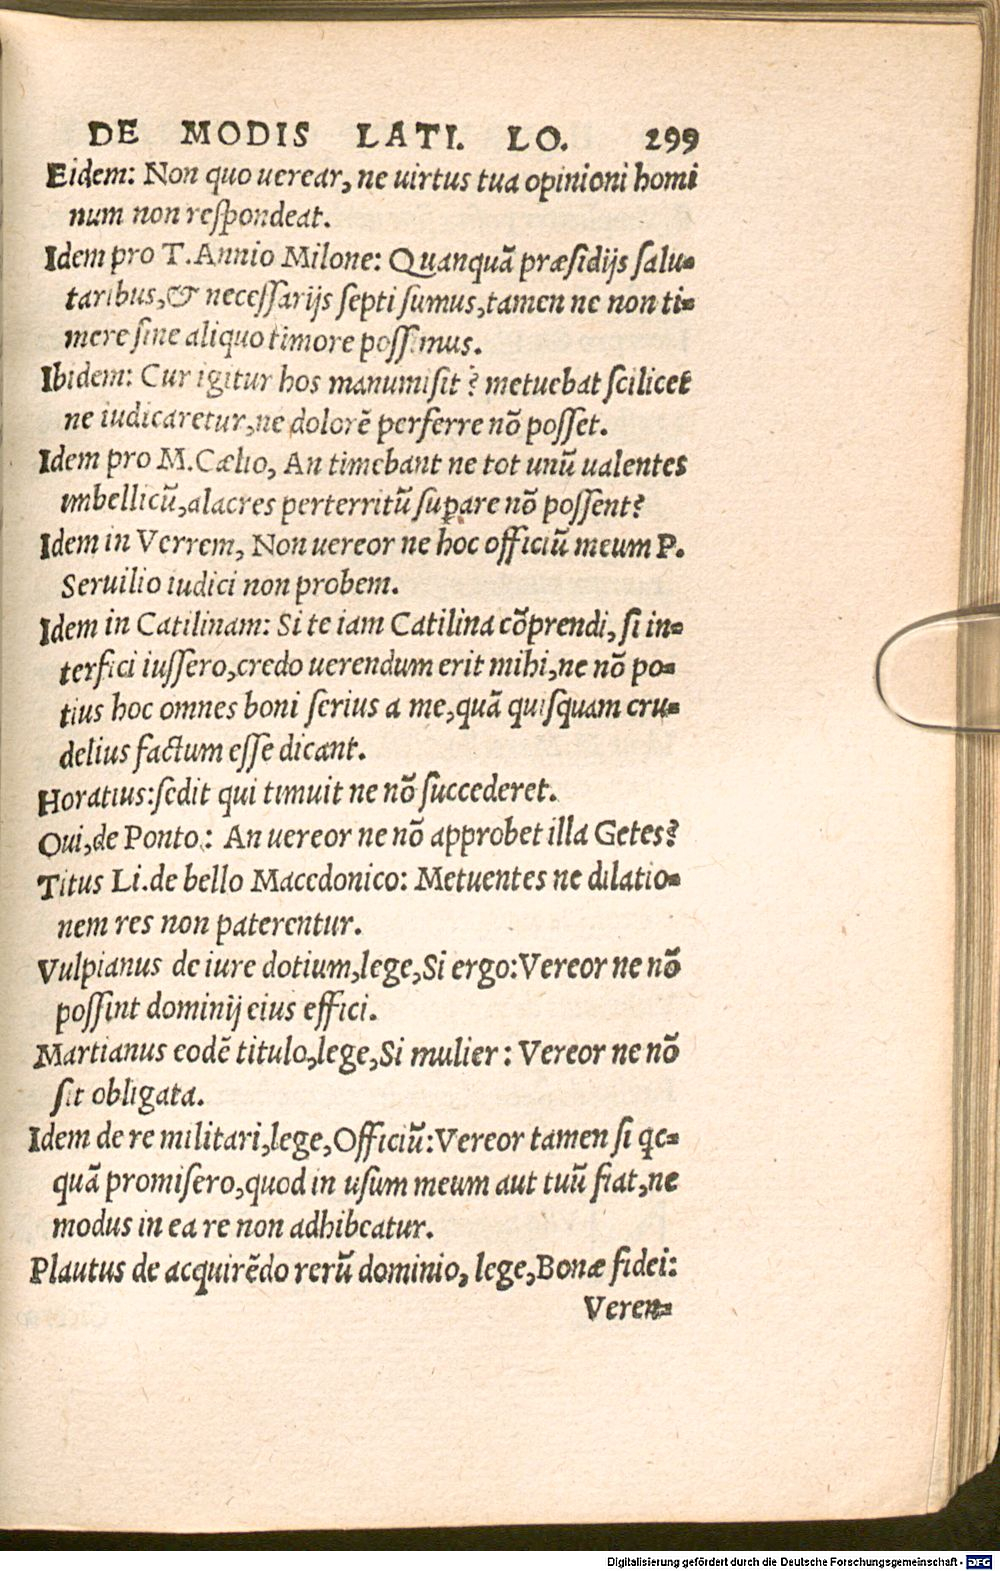 DE MODIS LATI. LO. 299
Eidem: Non quo uerear, ne uirtus tua opinioni homi
num non reſpondeat.
Idem pro T. Annio Milone: Quanquā præſidijs ſalu-
taribus, & neceſſarijs ſepti ſumus, tamen ne non ti-
mere ſine aliquo timore poſſimus.
Ibidem: Cur igitur hos manumiſit? metuebat ſcilicet
ne iudicaretur, ne dolorē perferre nō poſſet.
Idem pro M. Cælio, An timebant ne tot unū ualentes
imbellicū, alacres perterritū ſuꝑare nō poſſent?
Idem in Verrem, Non uereor ne hoc officiū meum P.
Seruilio iudici non probem.
Idem in Catilinam: Si te iam Catilina cōprendi, ſi in-
terfici iuſſero, credo uerendum erit mihi, ne nō po-
tius hoc omnes boni ſerius a me, quā quiſquam cru-
delius factum eſſe dicant.
Horatius: ſedit qui timuit ne nō ſuccederet.
Oui, de Ponto: An uereor ne nō approbet illa Getes?
Titus Li. de bello Macedonico: Metuentes ne dilatio-
nem res non paterentur.
Vulpianus de iure dotium, lege, Si ergo: Vereor ne nō
poſſint dominij eius effici.
Martianus eodē titulo, lege, Si mulier: Vereor ne nō
ſit obligata.
Idem de re militari, lege, Officiū: Vereor tamen ſi qc-
quā promiſero, quod in uſum meum aut tuū fiat, ne
modus in ea re non adhibeatur.
Plautus de acquirēdo rerū dominio, lege, Bonæ fidei:
Veren-
Digitalisierung gefördert durch die Deutsche Forschungsgemeinschaft - DFG